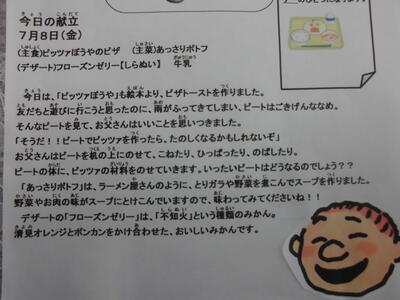 今日の献立
7月8日(金)
(主食)ピッツァぼうやのピザ (主菜)あっさりポトフ
(デザート)フローズンゼリー【しらぬい】 牛乳
今日は、「ピッツァぼうや」も絵本より、ピザトーストを作りました。
友だちと遊びに行こうと思ったのに、雨がふってきてしまい、ピートはごきげんななめ。
そんなピートを見て、お父さんはいいことを思いつきました。
「そうだ!!ピートでピッツァを作ったら、たのしくなるかもしれないぞ」
お父さんはピートを机の上にのせて、こねたり、ひっぱったり、のばしたり。
ピートの体に、ピッツァの材料をのせていきます。いったいピートはどうなるのでしょう??
「あっさりポトフ」は、ラーメン屋さんのように、とりガラや野菜を煮こんでスープを作りました。
野菜やお肉の味がスープにとけこんでいますので、味わってみてくださいね!!
デザートの「フローズンゼリー」は、「不知火」という種類のみかん。
清見オレンジとポンカンをかけ合わせた、おいしいみかんです。